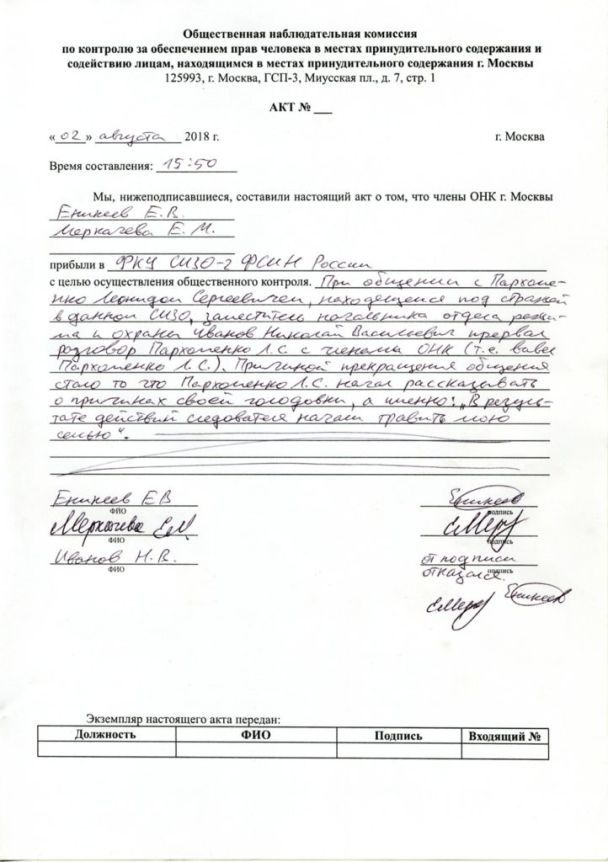 Общественная наблюдательная комиссия
по контролю за обеспечением прав человека в местах принудительного содержания и
содействию лицам, находящимся в местах принудительного содержания г. Москвы
125993, г. Москва, ГСП-3, Миусская пл., д. 7, стр. 1
АКТ № ___
«02» августа 2018 г. г. Москва
Время составления: 15:50
Мы, нижеподписавшиеся, составили настоящий акт о том, что члены ОНК г. Москвы
Еникеев Е.В.
Меркачева Е.М.
прибыли в ФКУ СИЗО-2 ФСИН России
с целью осуществления общественного контроля. При общении с Пархоме-
нко Леонидом Сергеевичем, находящемся под стражей
в данном СИЗО, заместитель начальника отдела режи-
ма и охраны Иванов Николай Васильевич прервал
разговор Пархоменко Л.С. с членами ОНК (т.е. вывел
Пархоменко Л.С.). Причиной прекращения общения
стало то что Пархоменко Л.С. начал рассказывать
о причинах своей голодовки, а именно: „В резуль-
тате действий следователя начали травить мою
семью“.
Еникеев ЕВ Еникеев
ФИО подпись
Меркачева ЕМ ЕМерк
ФИО подпись
Иванов Н.В. от подписи
ФИО подпись
отказался.
ЕМерк Еникеев
Экземпляр настоящего акта передан:
Должность ФИО Подпись Входящий №